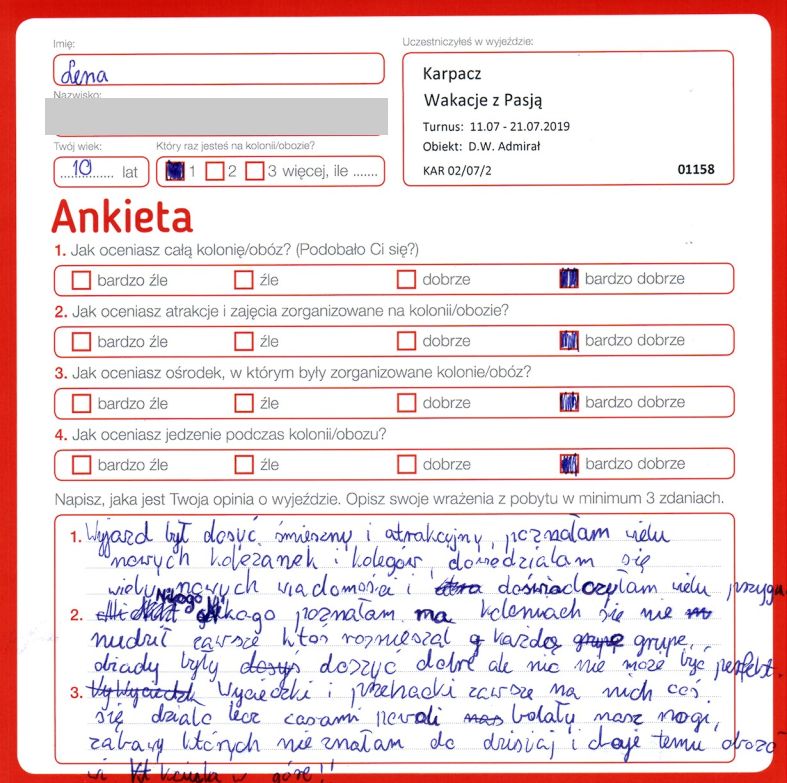 Imię:
Lena
Nazwisko:
Twój wiek:
10 lat
Który raz jesteś na kolonii/obozie?
1 2 3 więcej, ile .......
Uczestniczyłeś w wyjeździe:
Karpacz
Wakacje z Pasją
Turnus: 11.07 - 21.07.2019
Obiekt: D.W. Admirał
KAR 02/07/2 01158
Ankieta
1. Jak oceniasz całą kolonię/obóz? (Podobało Ci się?)
bardzo źle źle dobrze bardzo dobrze
2. Jak oceniasz atrakcje i zajęcia zorganizowane na kolonii/obozie?
bardzo źle źle dobrze bardzo dobrze
3. Jak oceniasz ośrodek, w którym były zorganizowane kolonie/obóz?
bardzo źle źle dobrze bardzo dobrze
4. Jak oceniasz jedzenie podczas kolonii/obozu?
bardzo źle źle dobrze bardzo dobrze
Napisz, jaka jest Twoja opinia o wyjeździe. Opisz swoje wrażenia z pobytu w minimum 3 zdaniach.
1. Wyjazd był dosyć śmieszny i atrakcyjny, poznałam wielu
nowych koleżanek i kolegów, dowiedziałam się
wielu nowych wiadomości i doświadczyłam wielu przyga
2. Nikogo kogo poznałam na koloniach się nie
nudził zawsze ktoś rozmieszał każdą grupę,
obiady były doszyć dobre ale nic nie może być perfekt.
3. Wycieczki i przehacki zawsze na nich coś
się działo lecz czasami bolały nasz nogi,
zabawy których nie znałam do dzisiaj i daje temu obozo
wi kciuka w górę!!